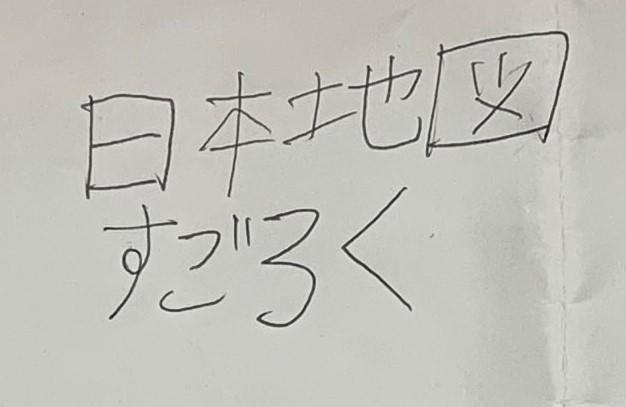 日本地図
すごろく